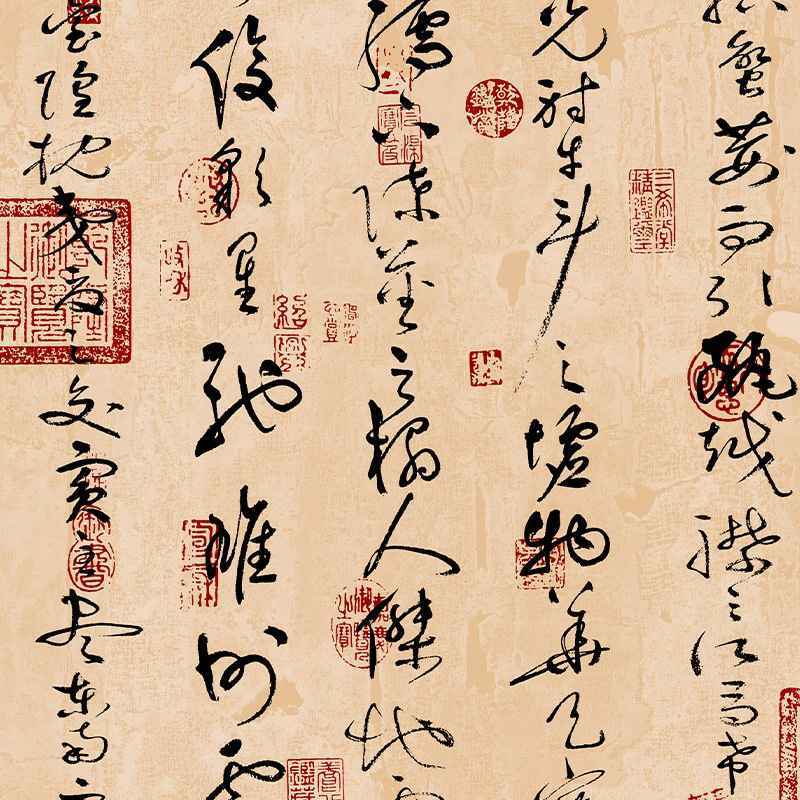 蠻荊而引甌越襟三江而帶
三希堂精鑑璽
光射牛斗之墟物華天寶
孺下陳蕃之榻人傑地
嘉慶御覽之寶
俊彩星馳雄州霧
臺隍枕夷夏之交賓主盡東南之